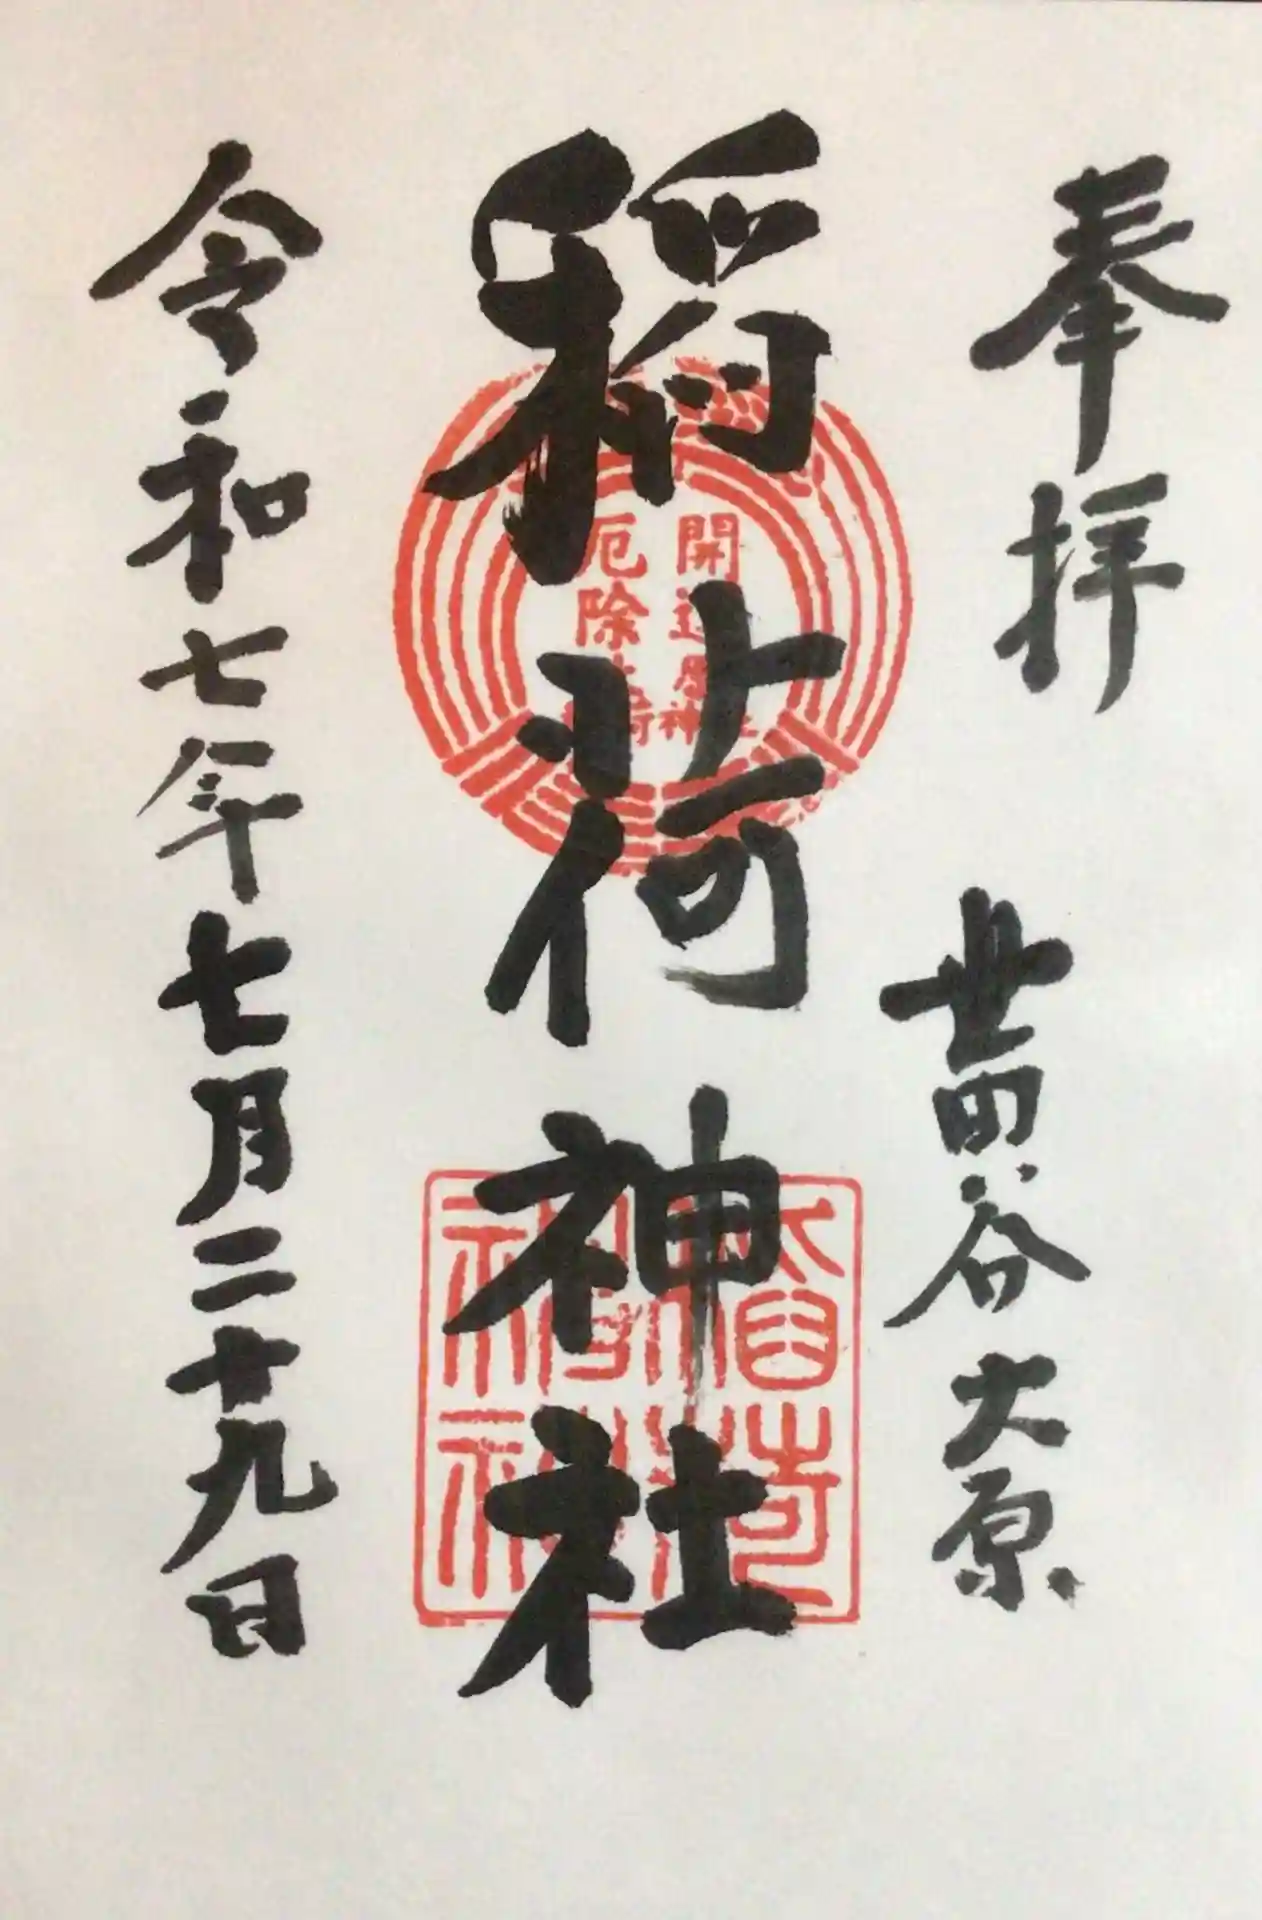 奉拝
世田谷大原
稲荷神社
開運
厄除
令和七年七月二十九日